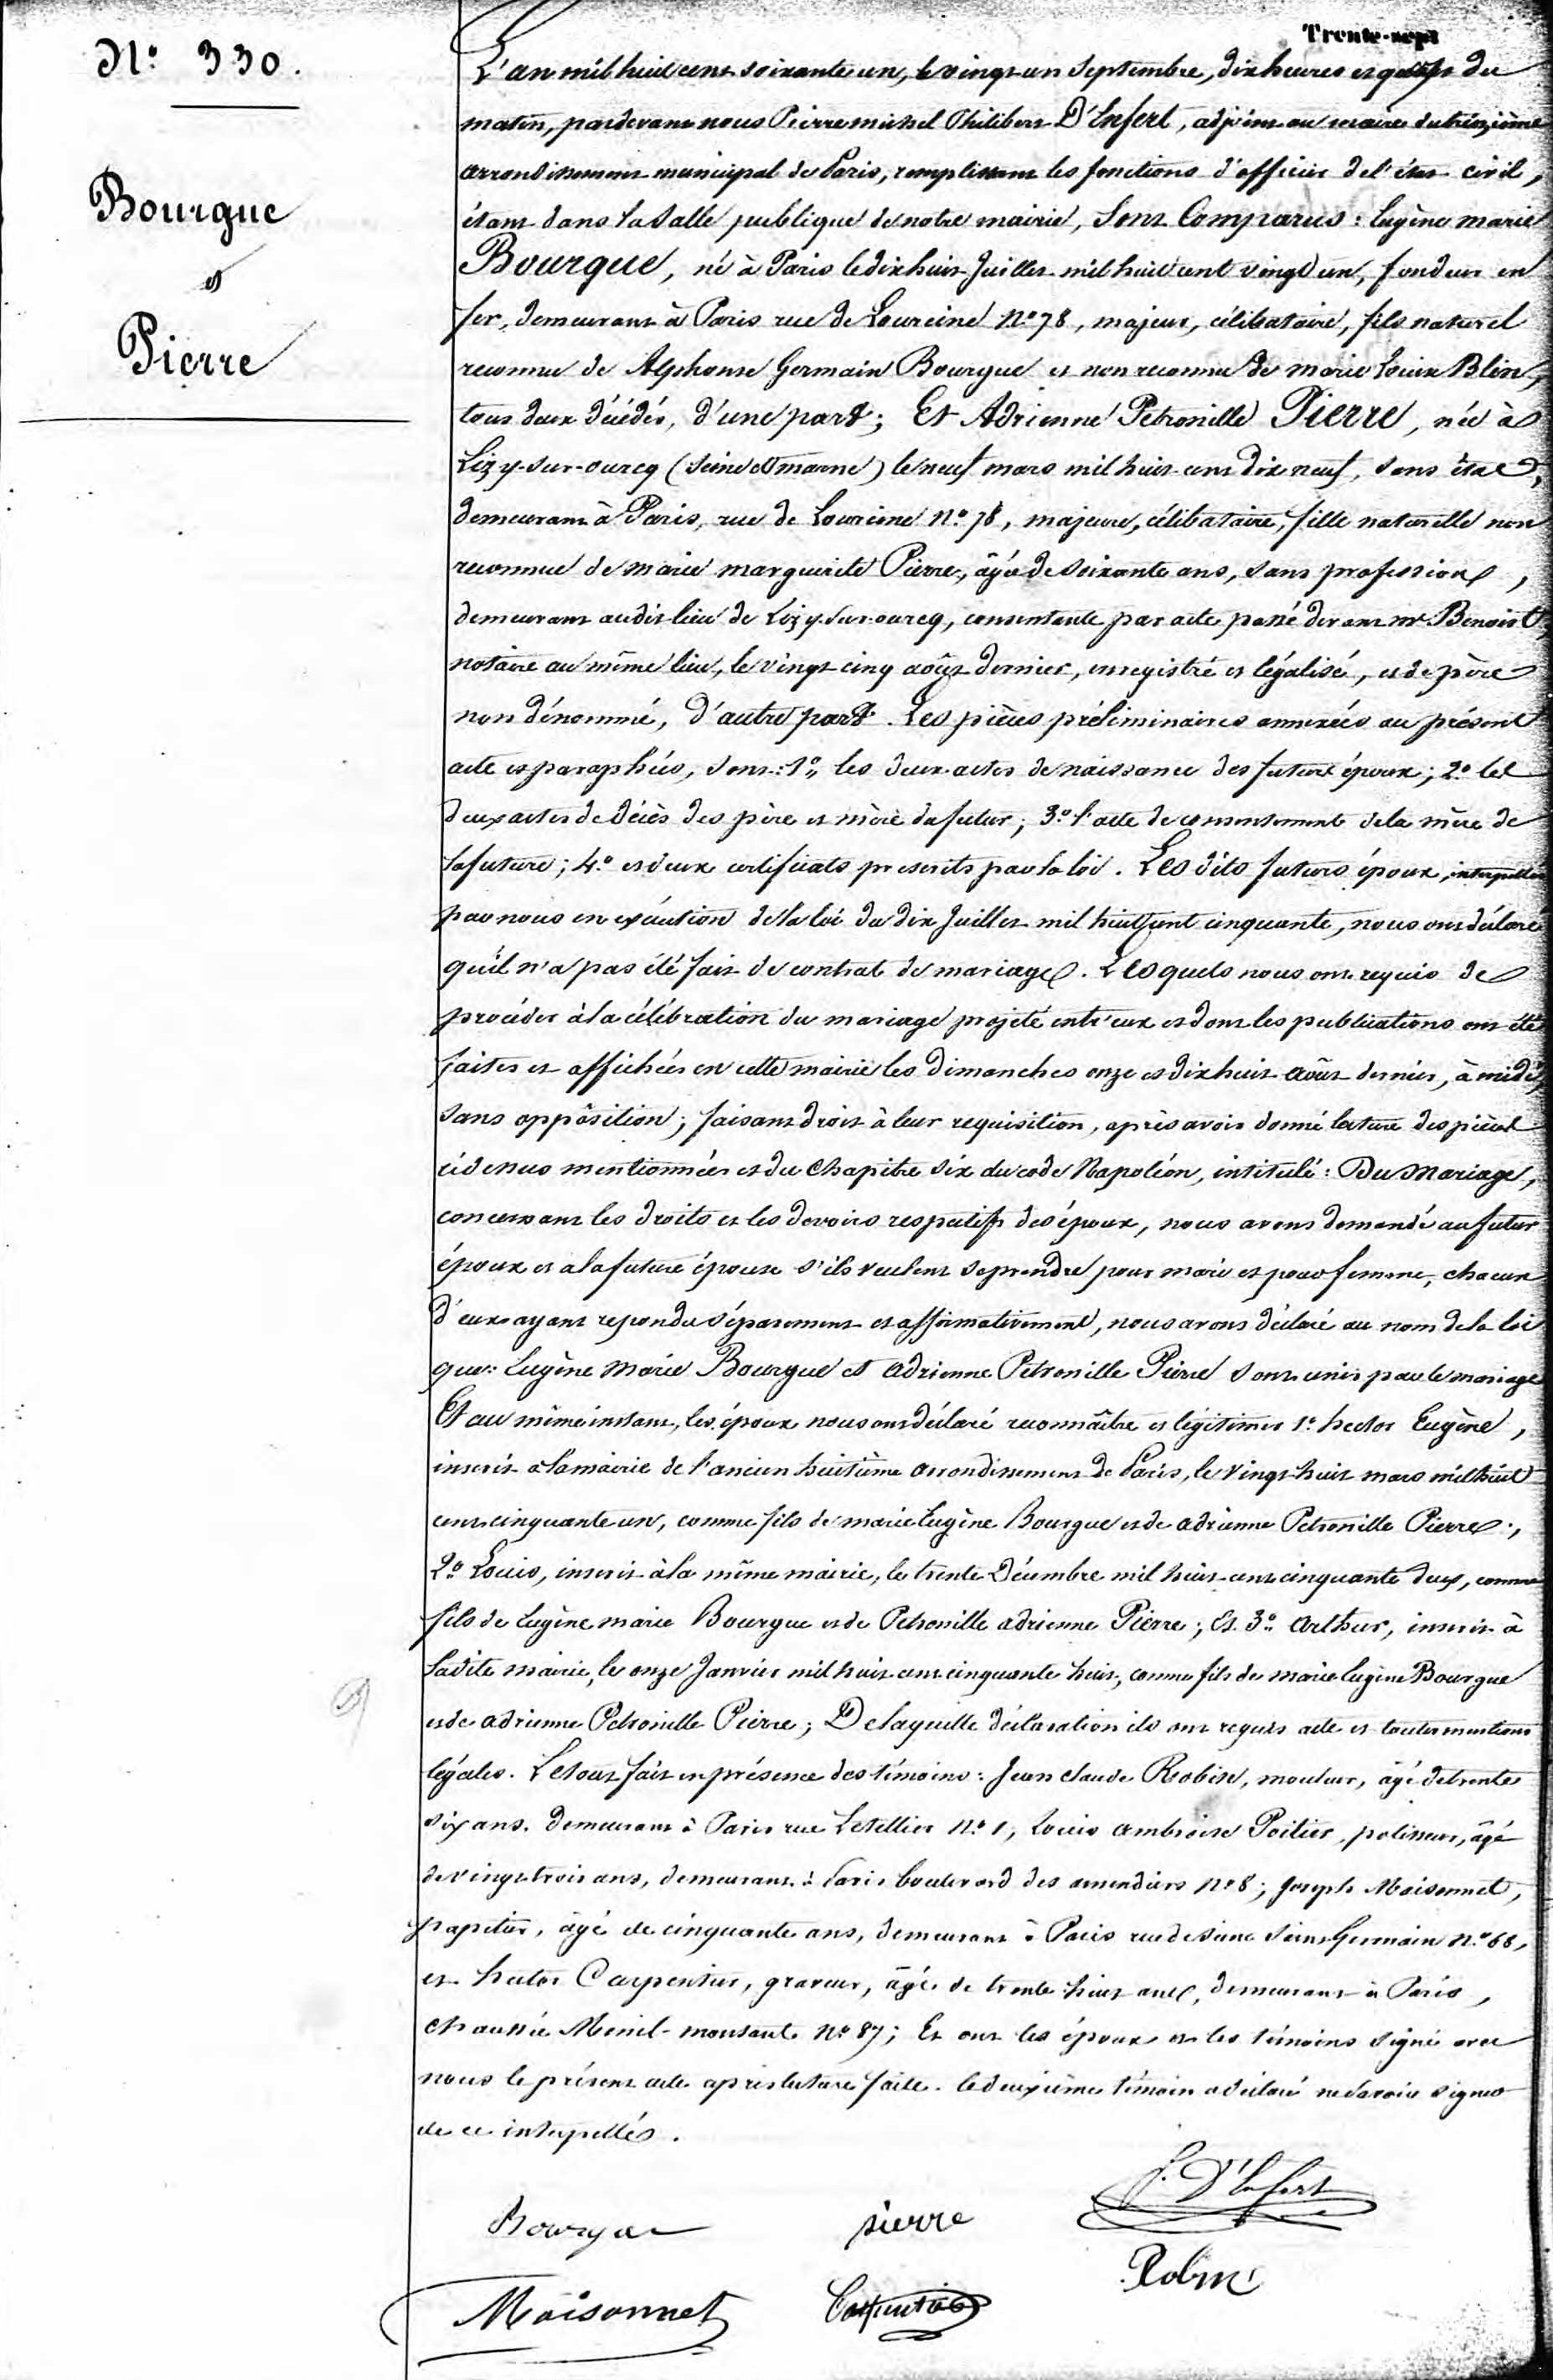 Trente-sept
N° 330.
Bourgue
et
Pierre
L'an mil huit cent soixante un, le vingt un Septembre, dix heures et quart du
matin, pardevant nous Pierre michel Philibert D'Enfert, adjoint au maire du treizième
arrondissement municipal de Paris, remplissant les fonctions d'officier de l'état civil,
étant dans la Salle publique de notre mairie, Sont Comparus : Eugène marie
Bourgue, né à Paris le dix huit Juillet mil huit cent vingt un, fondeur en
fer, demeurant à Paris rue de Lourcine N° 78, majeur, célibataire, fils naturel
reconnu de Alphonse Germain Bourgue et non reconnu de marie Louise Blin,
tous deux décédés, d'une part ; Et Adrienne Petronille Pierre, née à
Lizy-sur-ourcq (Seine et marne) le neuf mars mil huit cent dix neuf, sans état,
demeurant à Paris, rue de Lourcine N° 78, majeure, célibataire, fille naturelle non
reconnue de marie marguerite Pierre, âgée de soixante ans, sans profession,
demeurant audit lieu de Lizy-sur-ourcq, consentante par acte passé devant me Benoist
notaire au même lieu, le vingt cinq août dernier, enregistré et légalisé, et de père
non dénommé, d'autre part. Les pièces préliminaires annexées au présent
acte et paraphées, sont : 1° les deux actes de naissance des futurs époux ; 2° les
deux actes de décès des père et mère du futur ; 3° l'acte de consentement de la mère de
la future ; 4° et deux certificats prescrits par la loi. Les dits futurs époux, interpellés
par nous en exécution de la loi du dix Juillet mil huit cent cinquante, nous ont déclaré
qu'il n'a pas été fait de contrat de mariage. Lesquels nous ont requis de
procéder à la célébration du mariage projeté entr'eux et dont les publications ont été
faites et affichées en cette mairie les dimanches onze et dix huit août dernier, à midi,
sans oppôsition ; faisant droit à leur requisition, après avoir donné lecture des pièces
ci dessus mentionnées et du Chapitre Six du code Napoléon, intitulé : Du Mariage,
concernant les droits et les devoirs respectifs des époux, nous avons demandé au futur
époux et a la future épouse s'ils veulent se prendre pour mari et pour femme, chacun
d'eux ayant repondu séparement et affirmativement, nous avons déclaré au nom de la loi
que : Eugène Marie Bourgue et Adrienne Petronille Pierre sont unis par le mariage
Et au même instant, les époux nous ont déclaré reconnaître et légitimer 1° hector Eugène,
inscrit à la mairie de l'ancien huitième arrondissement de Paris, le vingt huit mars mil huit
cent cinquante un, comme fils de marie Eugène Bourgue et de adrienne Petronille Pierre ;
2° Louis, inscrit à la même mairie, le trente Décembre mil huit cent cinquante deux, comme
fils de Eugène marie Bourgue et de Petronille adrienne Pierre ; Et 3° Arthur, inscrit à
ladite mairie, le onze Janvier mil huit cent cinquante huit, comme fils de marie Eugène Bourgue
et de adrienne Petronille Pierre ; De laquelle déclaration ils ont requis acte et toutes mentions
légales. Le tout fait en présence des témoins : Jean claude Robin, mouleur, âgé de trente
six ans, demeurant à Paris rue Letellier N° 1, Louis ambroise Poitier, polisseur, âgé
de vingt trois ans, demeurant à Paris boulevard des amendiers N° 8 ; Joseph Maisonnet,
papetier, âgé de cinquante ans, demeurant à Paris rue de Seine Saint Germain N° 68,
et hector Carpentier, graveur, âgé de trente huit ans, demeurant à Paris,
chaussée Menil-montant N° 87 ; Et ont les époux et les témoins signé avec
nous le présent acte après lecture faite. le deuxième témoin a déclaré ne savoir signer
de ce interpellés.
P. D'Enfert
Bourgue
pierre
Robin
Maisonnet
Carpentier